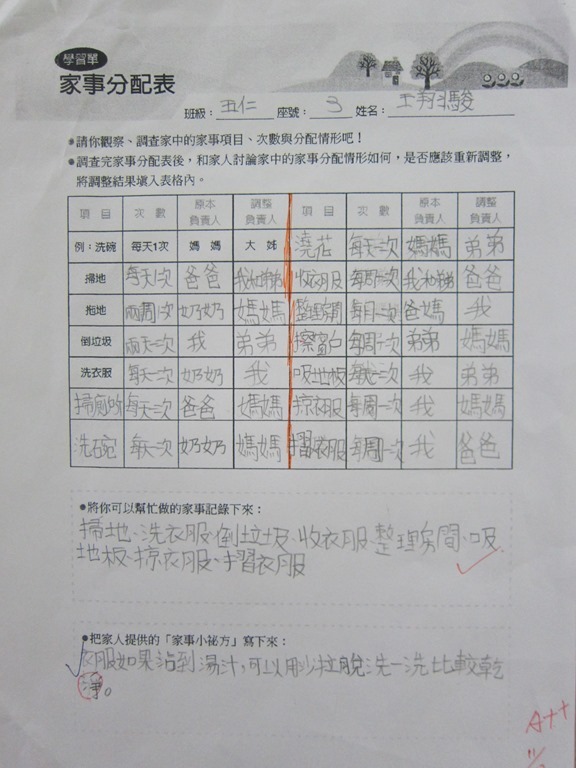 學習單
家事分配表
班級：五仁 座號：3 姓名：王翔駿
●請你觀察、調查家中的家事項目、次數與分配情形吧！
●調查完家事分配表後，和家人討論家中的家事分配情形如何，是否應該重新調整，
將調整結果填入表格內。
項目 次數 原本負責人 調整負責人 項目 次數 原本負責人 調整負責人
例：洗碗 每天1次 媽媽 大姊 澆花 每天一次 媽媽 弟弟
掃地 每天1次 爸爸 我和弟弟 收衣服 每周一次 我和弟弟 爸爸
拖地 兩周1次 奶奶 媽媽 整理房間 每月一次 爸媽 我
倒垃圾 兩天一次 我 弟弟 擦窗戶 每周一次 弟弟 媽媽
洗衣服 每天一次 奶奶 我 吸地板 每天一次 我 弟弟
掃廁所 每天一次 爸爸 媽媽 掠衣服 每周一次 我 媽媽
洗碗 每天一次 奶奶 媽媽 摺衣服 每周一次 我 爸爸
●將你可以幫忙做的家事記錄下來：
掃地、洗衣服、倒垃圾、收衣服、整理房間、吸
地板、掠衣服、摺衣服
●把家人提供的「家事小祕方」寫下來：
衣服如果沾到湯汁，可以用沙拉脫洗一洗比較乾
淨。
A++